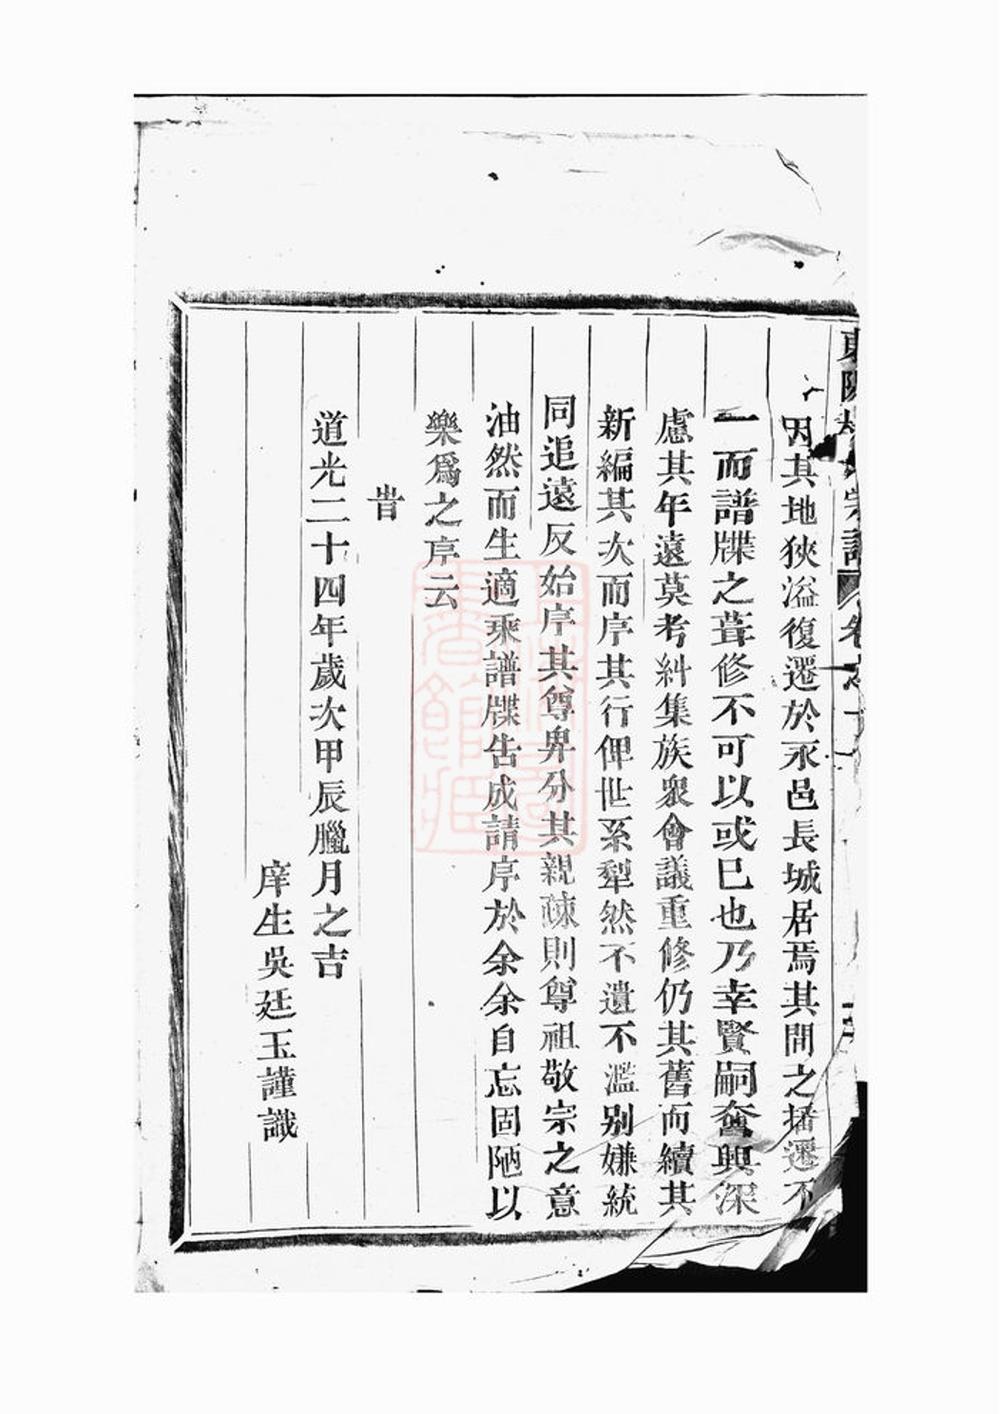 因其地狹溢復遷於永邑長城居焉其間之播遷不
一而譜牒之葺修不可以或巳也乃幸賢嗣奮興深
慮其年遠莫考糾集族衆會議重修仍其舊而續其
新編其次而序其行俾世系犁然不遺不濫别嫌統
同追遠反始序其尊卑分其親疎則尊祖敬宗之意
油然而生適乘譜牒告成請序於余余自忘固陋以
樂爲之序云
旹
道光二十四年歲次甲辰臘月之吉
庠生吳廷玉謹識